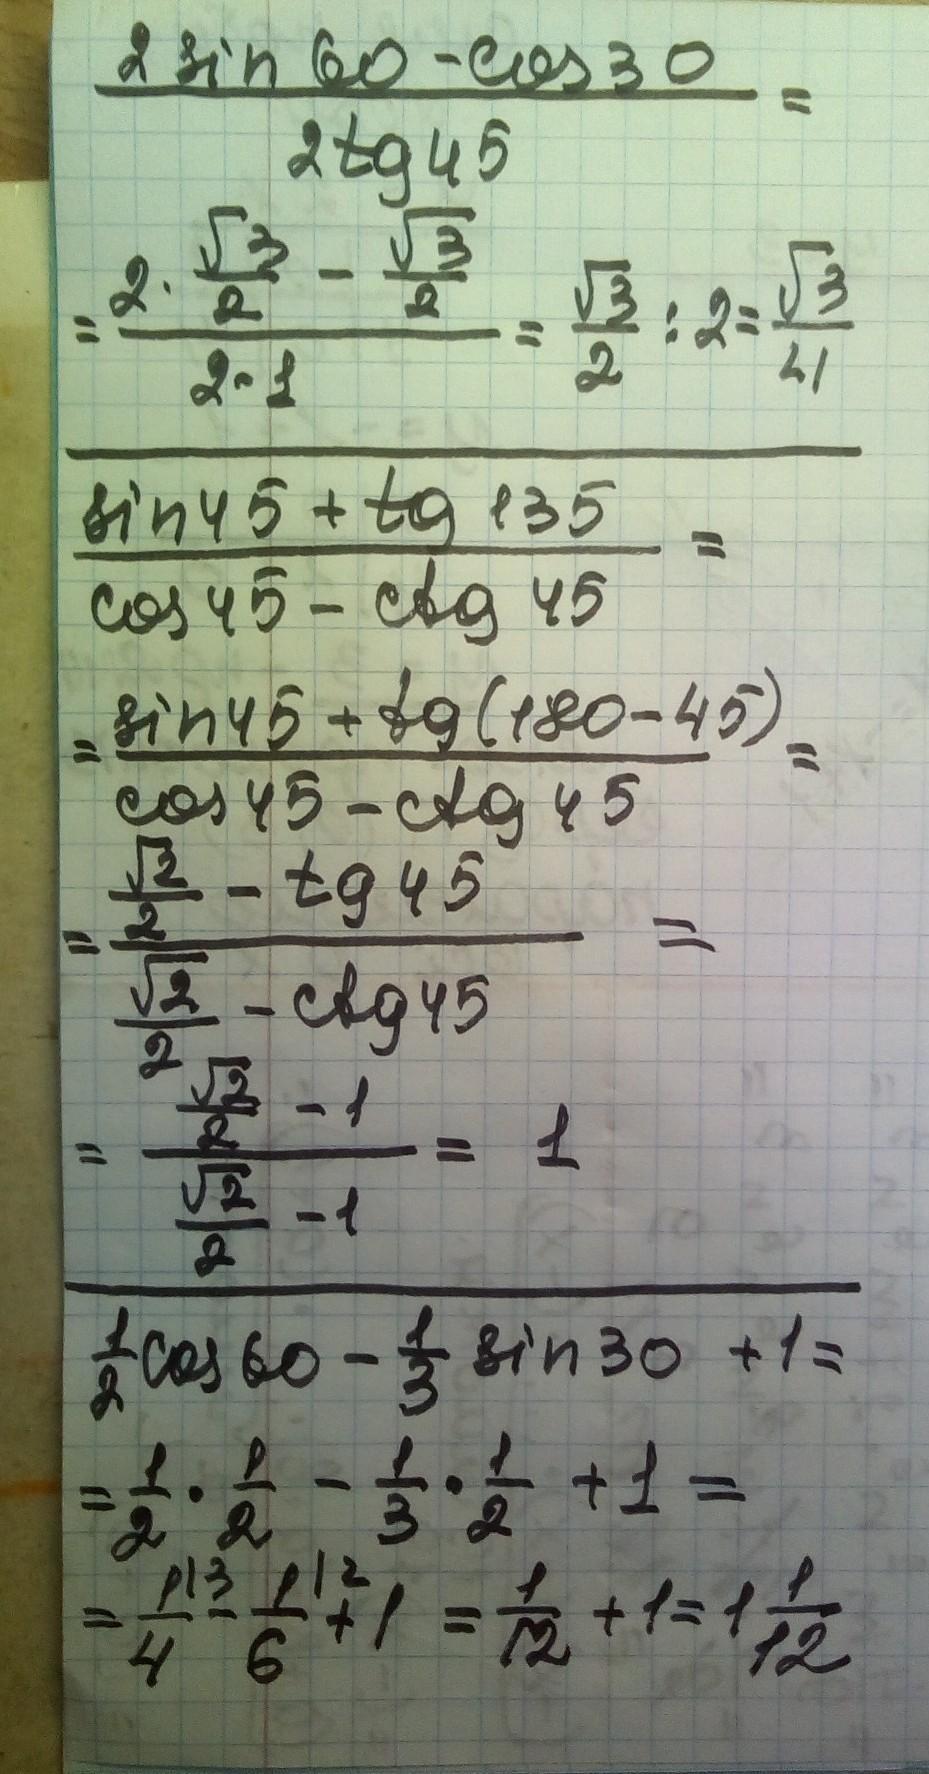 2 sin 60 - cos 30
=
2 tg 45
= (2 · √3/2 - √3/2) / (2 · 1) = √3/2 : 2 = √3/4
sin 45 + tg 135
=
cos 45 - ctg 45
= sin 45 + tg (180 - 45) =
cos 45 - ctg 45
= (√2/2 - tg 45) / (√2/2 - ctg 45) =
= (√2/2 - 1) / (√2/2 - 1) = 1
1/2 cos 60 - 1/3 sin 30 + 1 =
= 1/2 · 1/2 - 1/3 · 1/2 + 1 =
= 1|3/4 - 1|2/6 + 1 = 1/12 + 1 = 1 1/12